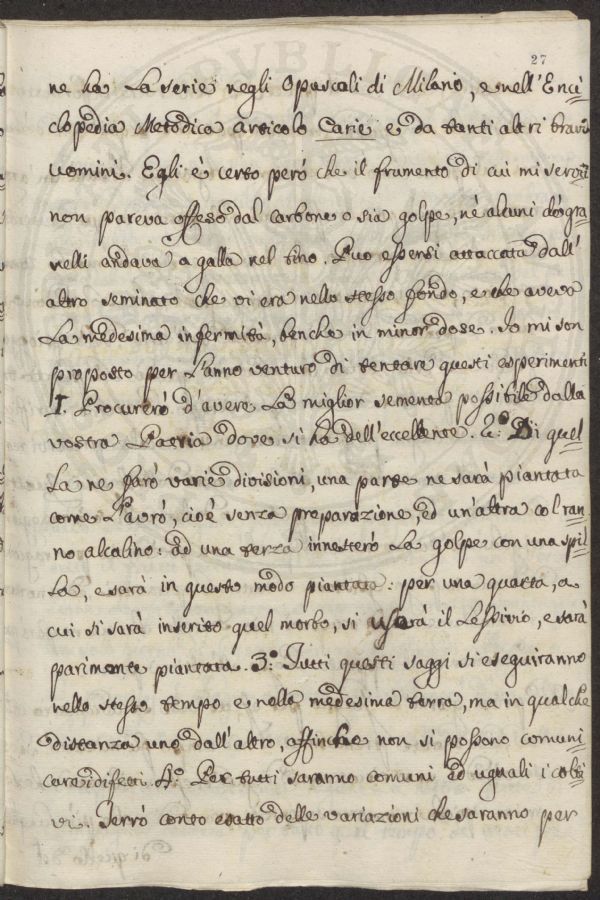 27
ne ha La serie negli Opuscali di Milano, e nell'Enci
clopedia Metodica articolo Carie e da tanti altri bravi
uomini. Egli è certo però che il frumento di cui mi servii
non pareva offeso dal carbone o sia golpe, nè alcuni de' gra
nelli andava a galla nel tino. Puo essersi attaccata dall'
altro seminato che vi era nello stesso fondo, e che aveva
La medesima infermità, benche in minor dose. Io mi son
proposto per l'anno venturo di tentare questi esperimenti
I. Procurerò d'avere La miglior sementa possibile dalla
vostra Patria dove si ha dell'eccellente. 2.º Di quel
La ne farò varie divisioni, una parte ne sarà piantata
come L'avrò, cioè senza preparazione, ed un'altra col ran
no alcalino: ad una terza innesterò La golpe con una spil
La, e sarà in questo modo piantata: per una quarta, a
cui si sarà inserito quel morbo, si userà il Lessivio, e sarà
parimente piantata. 3.º Tutti questi saggi si eseguiranno
nello stesso tempo e nella medesima terra, ma in qualche
distanza uno dall'altro, affinche non si possono comuni
care i difetti. 4.º Per tutti saranno comuni ed uguali i colti
vi. Terrò conto esatto delle variazioni che saranno per